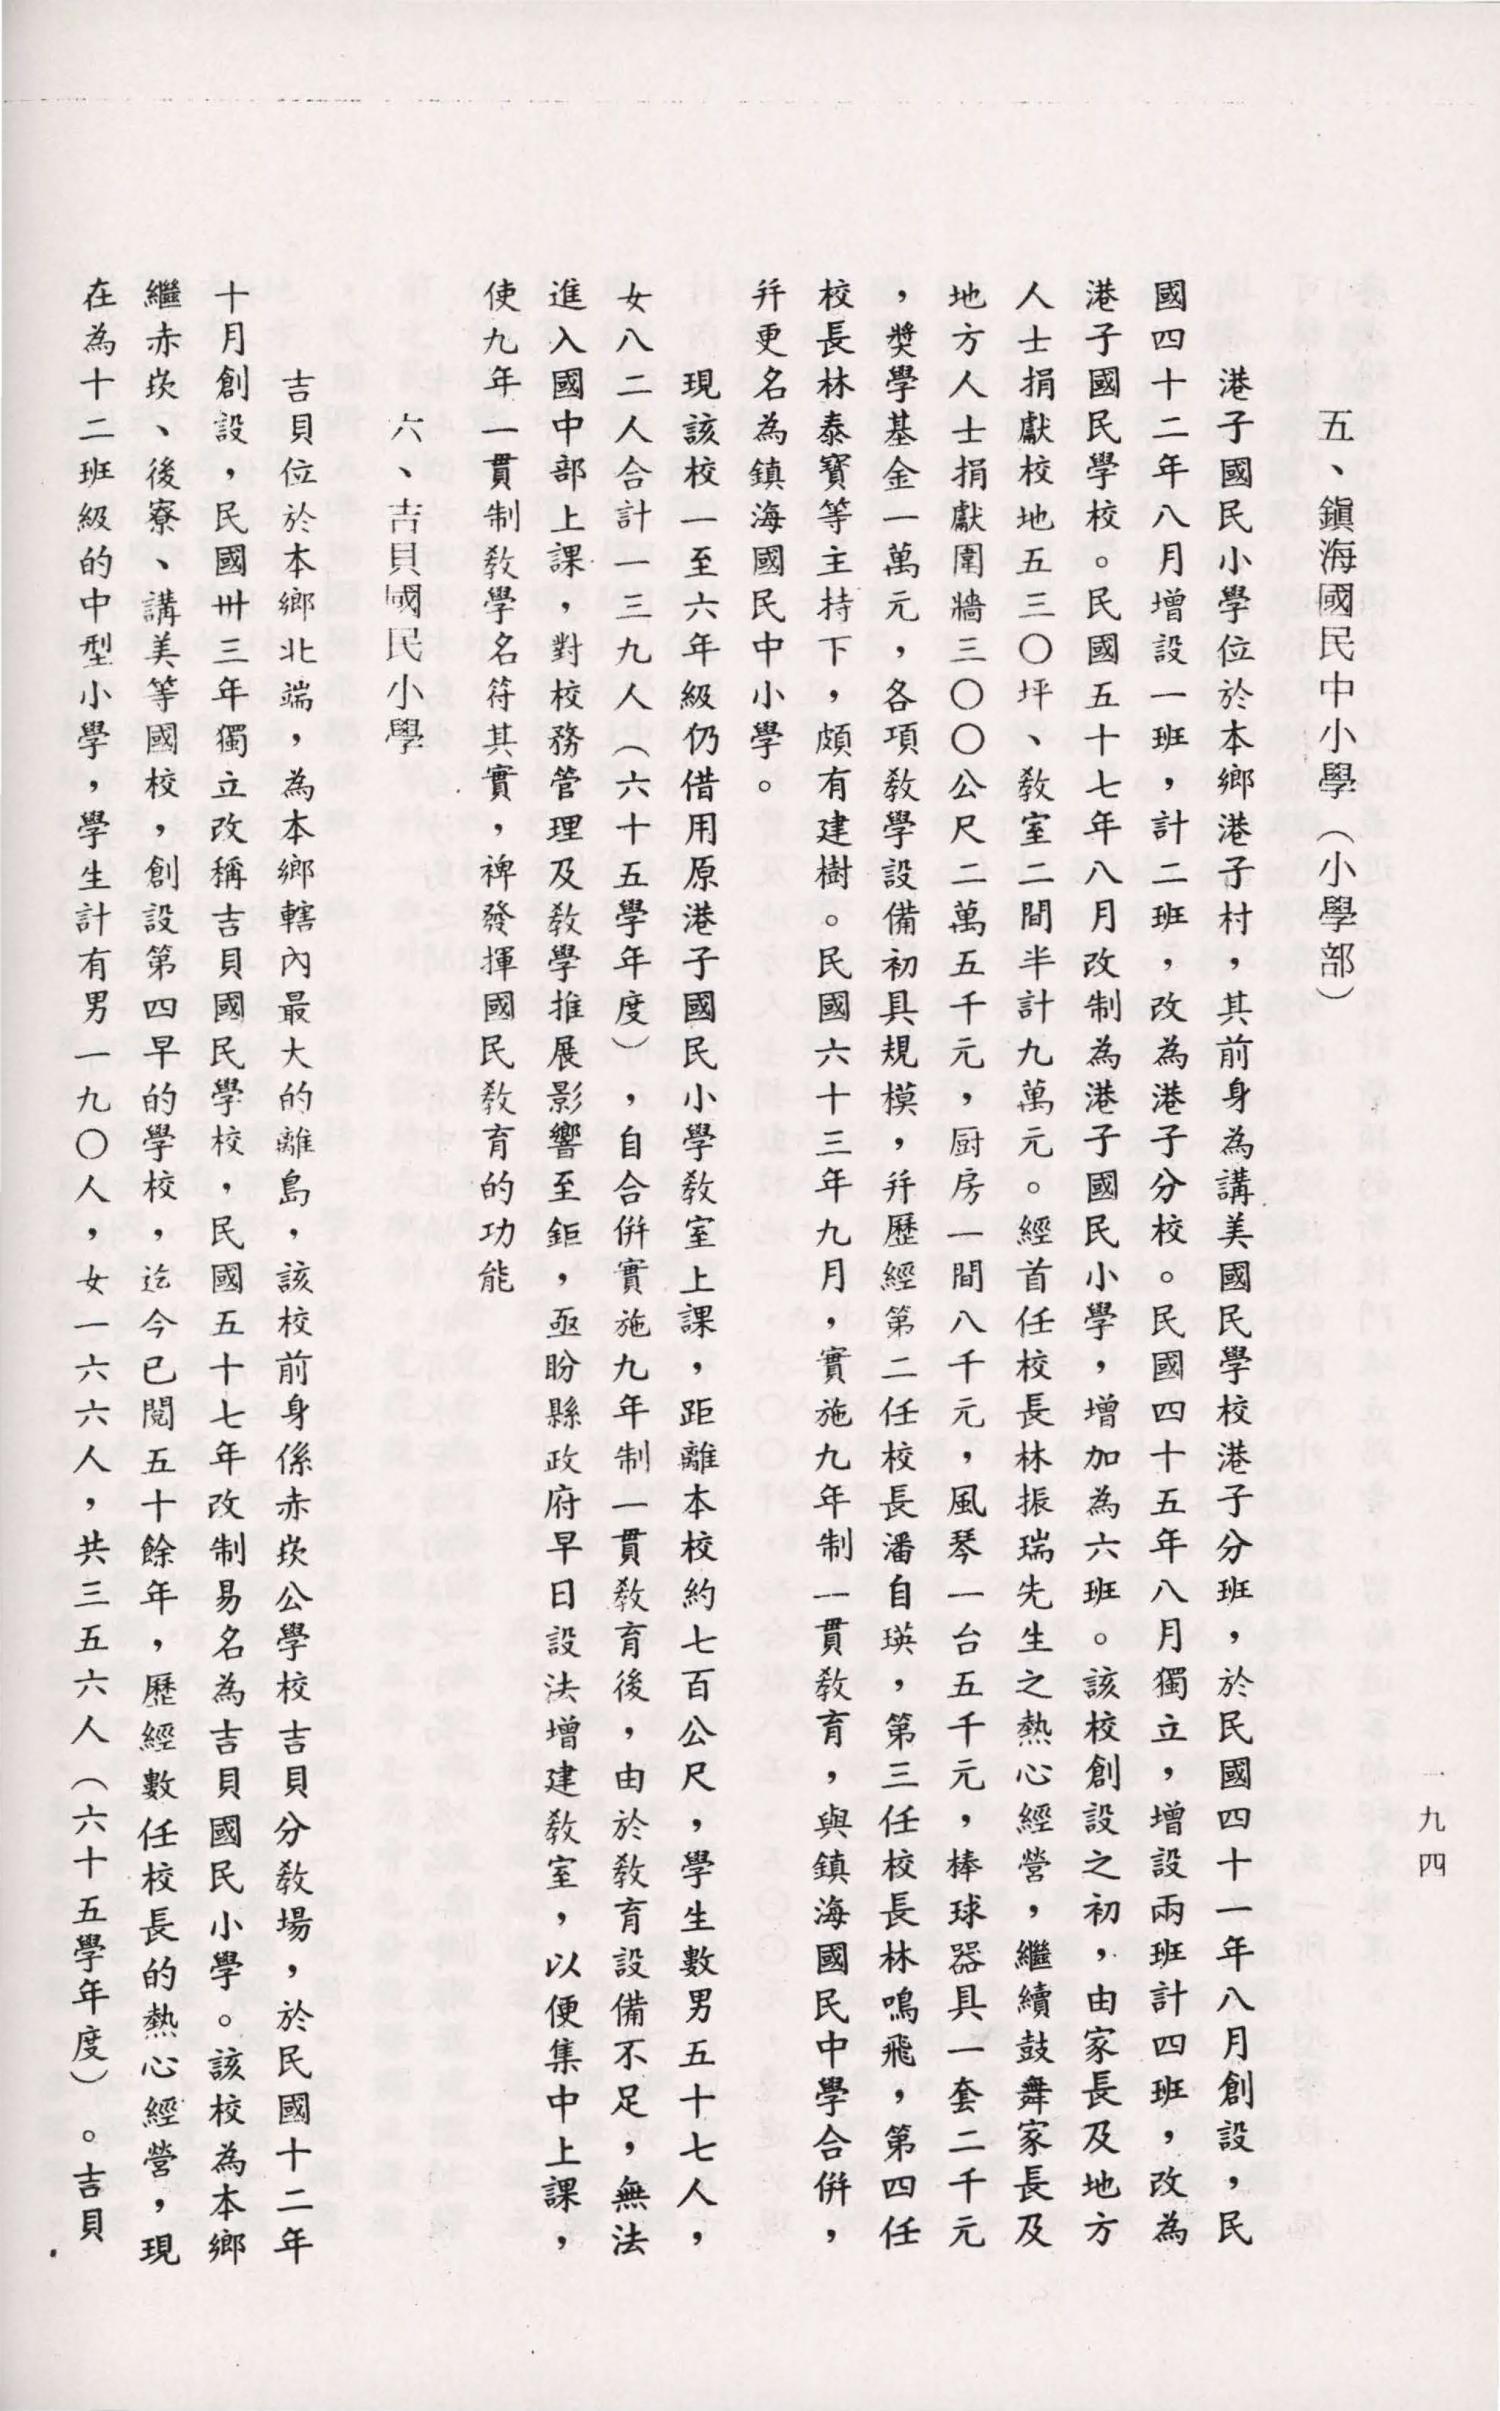 一九四
五、鎭海國民中小學（小學部）
港子國民小學位於本鄉港子村，其前身為講美國民學校港子分班，於民國四十一年八月創設，民
國四十二年八月增設一班，計二班，改為港子分校。民國四十五年八月獨立，增設兩班計四班，改為
港子國民學校。民國五十七年八月改制為港子國民小學，增加為六班。該校創設之初，由家長及地方
人士捐獻校地五三〇坪、教室二間半計九萬元。經首任校長林振瑞先生之熱心經營，繼續鼓舞家長及
地方人士捐獻圍牆三〇〇公尺二萬五千元，厨房一間八千元，風琴一台五千元，棒球器具一套二千元
，獎學基金一萬元，各項教學設備初具規模，幷歷經第二任校長潘自瑛，第三任校長林鳴飛，第四任
校長林泰寶等主持下，頗有建樹。民國六十三年九月，實施九年制一貫教育，與鎮海國民中學合併，
幷更名為鎮海國民中小學。
現該校一至六年級仍借用原港子國民小學教室上課，距離本校約七百公尺，學生數男五十七人，
女八二人合計一三九人（六十五學年度），自合併實施九年制一貫教育後，由於教育設備不足，無法
進入國中部上課，對校務管理及教學推展影響至鉅，亟盼縣政府早日設法增建教室，以便集中上課，
使九年一貫制教學名符其實，裨發揮國民教育的功能
六、吉貝國民小學
吉貝位於本鄉北端，為本鄉轄內最大的離島，該校前身係赤崁公學校吉貝分教場，於民國十二年
十月創設，民國卅三年獨立改稱吉貝國民學校，民國五十七年改制易名為吉貝國民小學。該校為本鄉
繼赤崁、後寮、講美等國校，創設第四早的學校，迄今已閱五十餘年，歷經數任校長的熱心經營，現
在為十二班級的中型小學，學生計有男一九〇人，女一六六人，共三五六人（六十五學年度）。吉貝